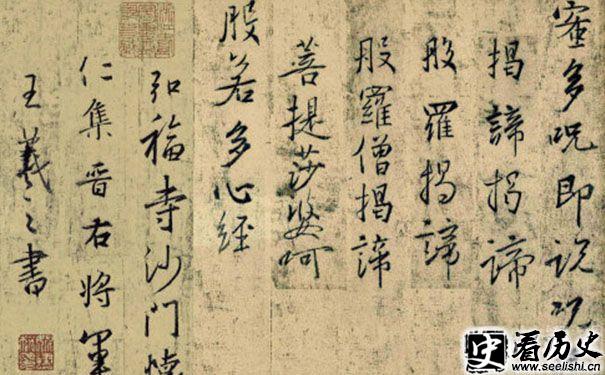 蜜多呪即說呪
揭諦揭諦
般羅揭諦
般羅僧揭諦
菩提莎婆呵
般若多心經
弘福寺沙門懷
仁集晋右將軍
王羲之書
史 看历史
www.seelishi.cn